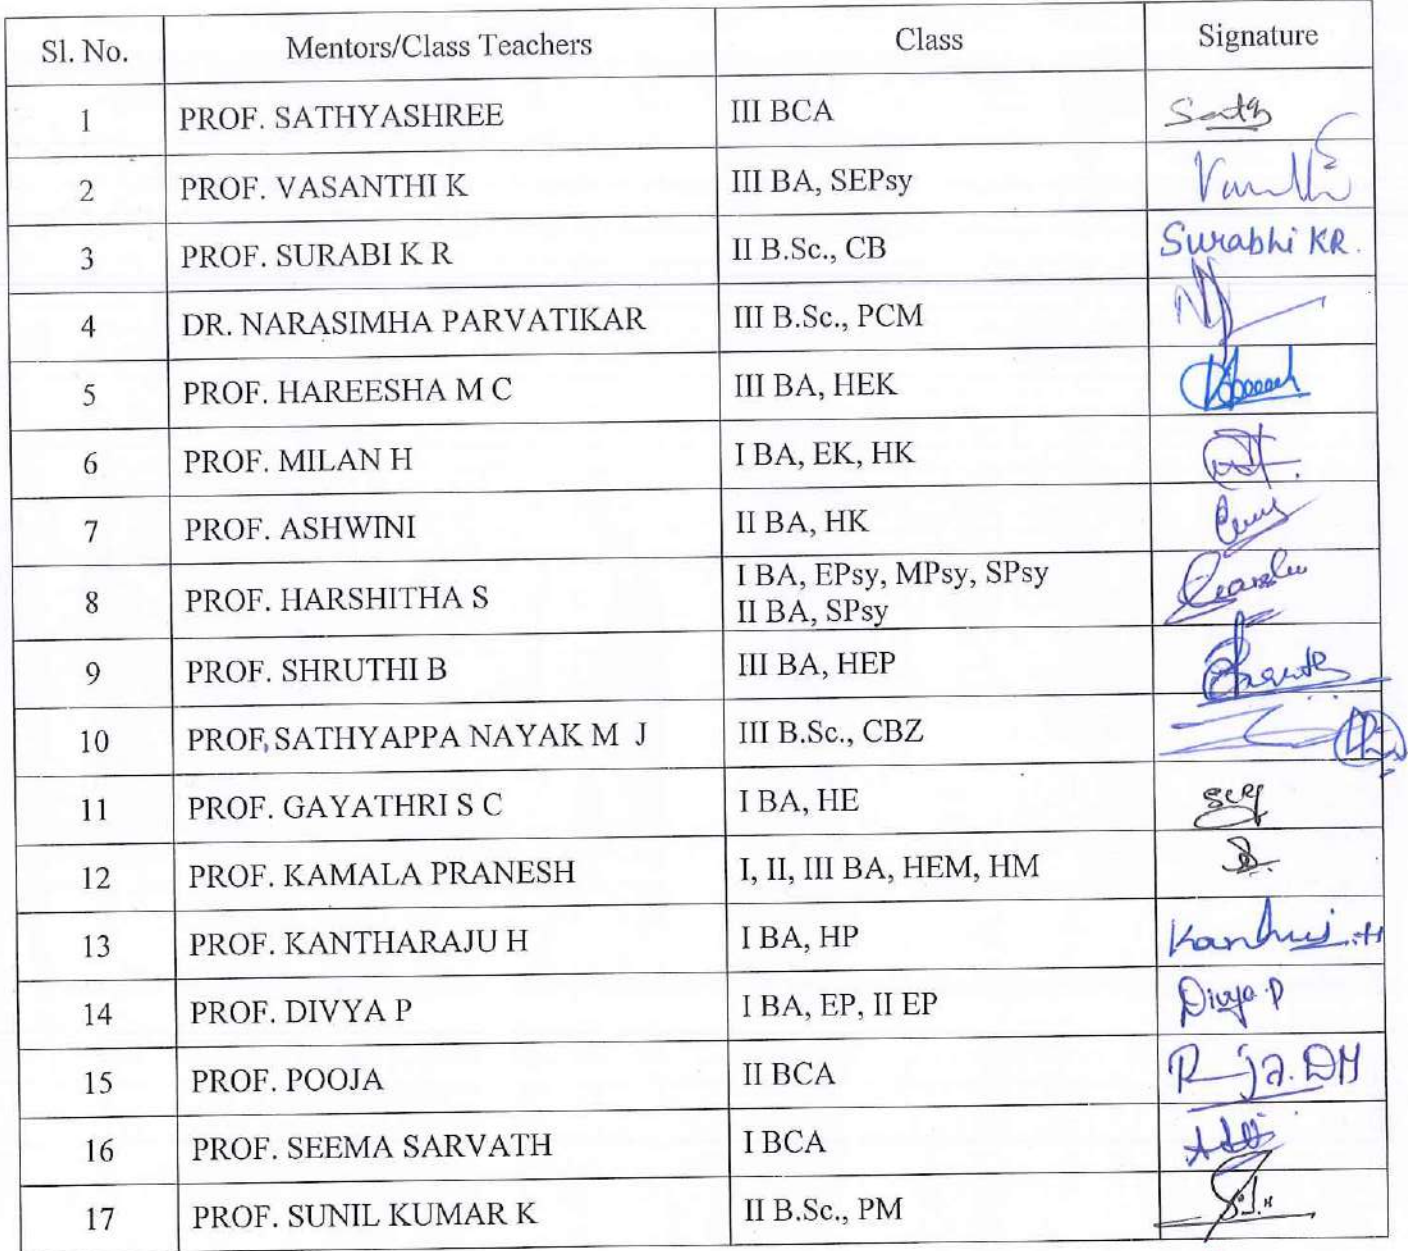 Sl. No. Mentors/Class Teachers Class Signature
1 PROF. SATHYASHREE III BCA
2 PROF. VASANTHI K III BA, SEPsy
3 PROF. SURABI K R II B.Sc., CB Surabhi KR.
4 DR. NARASIMHA PARVATIKAR III B.Sc., PCM
5 PROF. HAREESHA M C III BA, HEK
6 PROF. MILAN H I BA, EK, HK
7 PROF. ASHWINI II BA, HK
8 PROF. HARSHITHA S I BA, EPsy, MPsy, SPsy
II BA, SPsy
9 PROF. SHRUTHI B III BA, HEP
10 PROF. SATHYAPPA NAYAK M J III B.Sc., CBZ
11 PROF. GAYATHRI S C I BA, HE
12 PROF. KAMALA PRANESH I, II, III BA, HEM, HM
13 PROF. KANTHARAJU H I BA, HP
14 PROF. DIVYA P I BA, EP, II EP Divya.P
15 PROF. POOJA II BCA
16 PROF. SEEMA SARVATH I BCA
17 PROF. SUNIL KUMAR K II B.Sc., PM